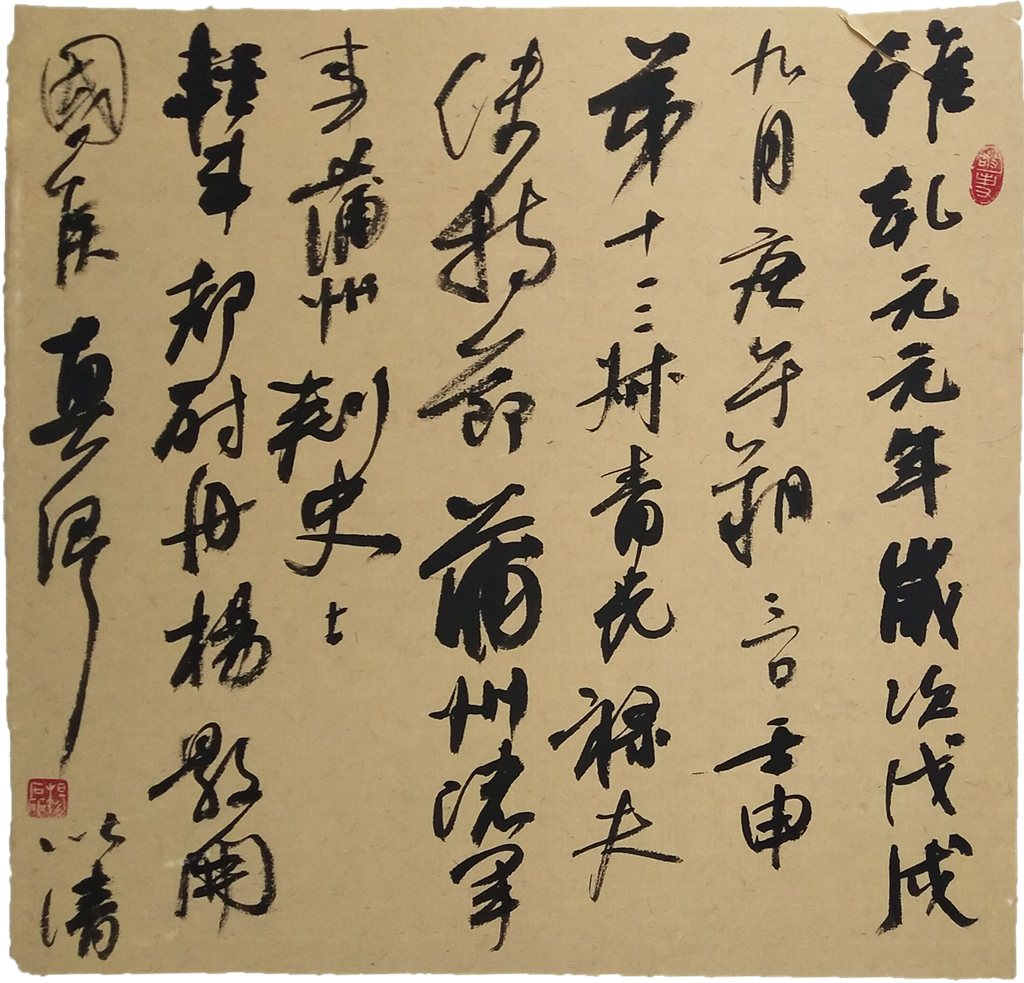 維乾元元年歲次戊戌
九月庚午朔三日壬申
第十三叔青光祿夫
使持節蒲州諸軍
事蒲州刺史上
輕車都尉丹楊縣開
國侯真卿以清